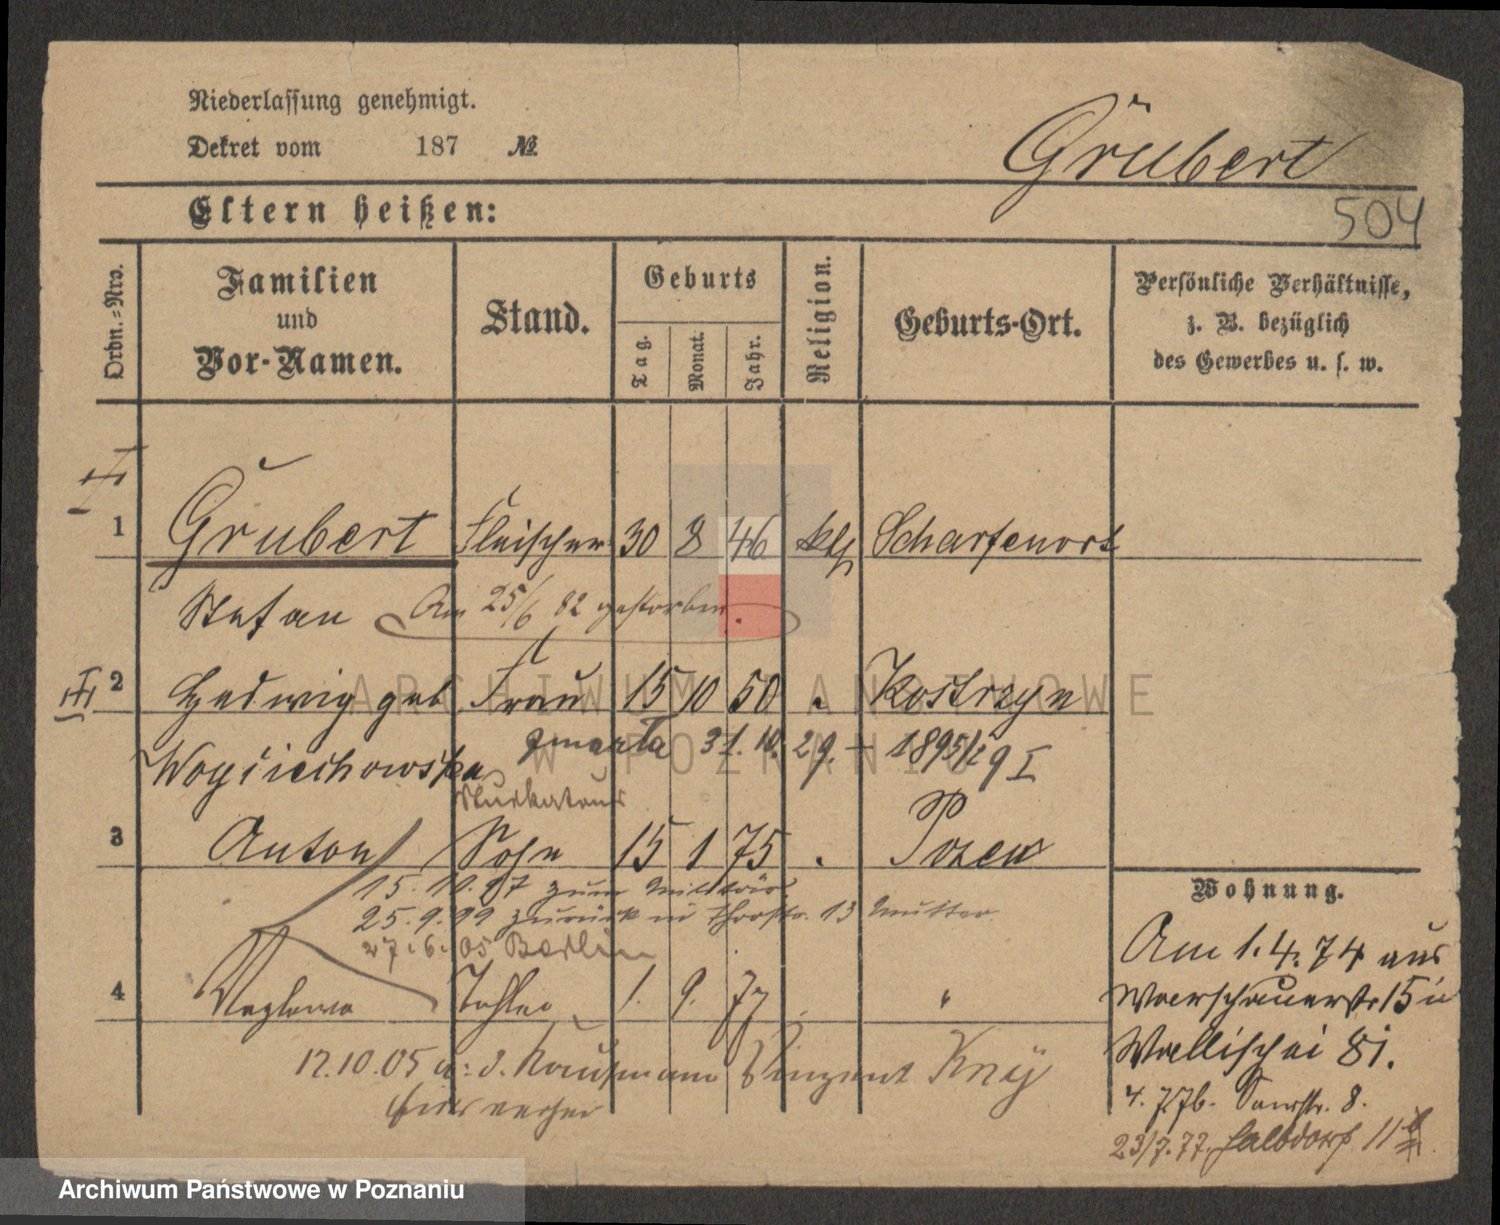 Niederlassung genehmigt.
Dekret vom 187 №
Grubert
504
Eltern heißen:
Ordn.-Nro.
Familien
und
Vor-Namen.
Stand.
Geburts
Tag.
Monat.
Jahr.
Religion.
Geburts-Ort.
Persönliche Verhältnisse,
z. B. bezüglich
des Gewerbes u. s. w.
I
1 Grubert Fleischer 30 8 46 kth Scharfenort
Stefan Am 25/6 82 gestorben.
II
2 Hedwig geb Frau 15 10 50 Kostrzyn
Woyciechowska zmarła 31. 1895
3 Anton Sohn 15 1 75 Posen
15. 10. 97 zum Militär.
25. 9. 99 zurück 13 Mutter.
27. 6. 05 Berlin
4 Tochter 1. 9. 77 "
12.10.05 Kaufmann Vinzent
hier
Wohnung.
Am 1. 4. 74 aus
15 in
Wallischei 81.
4. 7. 76. 8.
23/7. 77. Halbdorf 11
ARCHIWUM PAŃSTWOWE
W POZNANIU
Archiwum Państwowe w Poznaniu